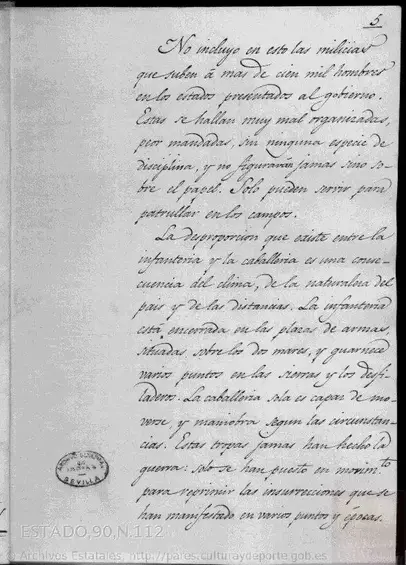 5
No incluyo en esto las milicias
que suben à mas de cien mil hombres
en los estados presentados al gobierno.
Estas se hallan muy mal organizadas,
peor mandadas, sin ninguna especie de
disciplina, y no figuraràn jamas sino so-
bre el papel. Solo pueden servir para
patrullar en los campos.
La desproporcion que existe entre la
infanteria y la caballeria es una conse-
cuencia del clima, de la naturaleza del
pais y de las distancias. La infanteria
està encerrada en las plazas de armas,
situadas sobre los dos mares, y guarnece
varios puntos en las sierras y los desfi-
laderos. La caballeria sola es capaz de mo-
verse, y maniobra segun las circunstan-
cias. Estas tropas jamas han hecho la
guerra: solo se han puesto en movim.to
para reprimir las insurrecciones que se
han manifestado en varios puntos y épocas.
ARCHIVO GENERAL
DE
INDIAS
SEVILLA
ESTADO,90,N.112
Archivos Estatales, http://pares.culturaydeporte.gob.es